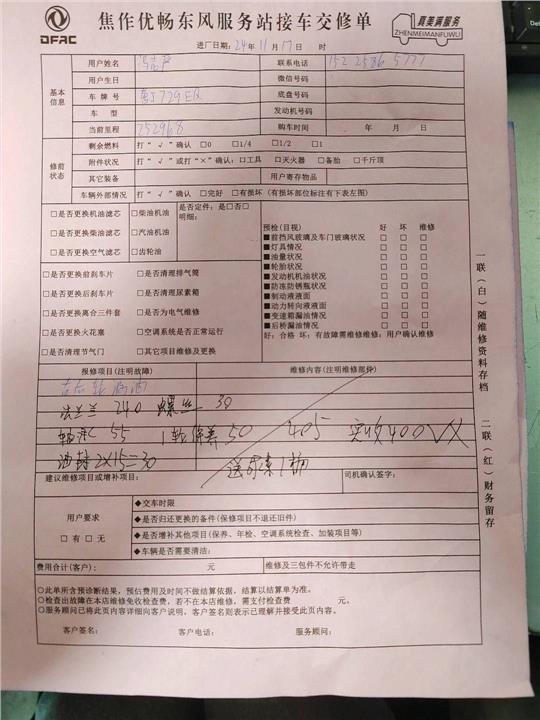 DFAC
焦作优畅东风服务站接车交修单
真美满服务
ZHENMEIMANFUWU
进厂日期: 24年 11月 17日 时
基本信息
用户姓名
联系电话 152 2586 5777
用户生日
微信号码
车牌号 729EQ
底盘号码
车型
发动机号码
当前里程 252968
购车时间 年 月 日
修前状态
剩余燃料 打“√”确认 □0 □1/4 □1/2 □1
附件状况 打“√”或打“×”确认:□工具 □灭火器 □备胎 □千斤顶
其它装备
用户寄存物品
车辆外部情况 打“√”确认 □完好 □有损坏(有损坏部位标注有下表左图)
□是否更换机油滤芯 □柴油机油
□是否更换柴油滤芯 □汽油机油
□是否更换空气滤芯 □齿轮油
是否定件:是□否□
明细:
□是否更换前刹车片 □是否清理排气筒
□是否更换后刹车片 □是否清理尿素箱
□是否更换离合三件套 □是否为电气维修
□是否更换火花塞 □空调系统是否正常运行
□是否清理节气门 □其它项目维修及更换
预检(目视) 好 坏 维修
■前挡风玻璃及车门玻璃状况 □ □ □
■灯具情况 □ □ □
■油量状况 □ □ □
■轮胎状况 □ □ □
■发动机机油状况 □ □ □
■防冻防锈瓶状况 □ □ □
■制动液液面 □ □ □
■动力转向液液面 □ □ □
■变速箱漏油情况 □ □ □
■后桥漏油情况 □ □ □
好:合格 坏:有故障需维修维修:用户确认维修
报修项目(注明故障)
维修内容(注明维修部件)
240 螺丝 30
55 保养 50 405 实收400
油封2×15=30
送尿素1桶
建议维修项目或增补项目:
司机确认签字:
用户要求
□有□无
◆交车时限
◆是否归还更换的备件(保修项目不退还旧件)
◆是否增补其他项目(保养、年检、空调系统检查、加装项目等)
◆车辆是否需要清洁:
费用合计(客户): 元
维修及三包件不允许带走
○此单所含预诊断结果,预估费用及时间不做结算依据,结算以结算单为准。
○检查出故障在本店维修免收检查费,若不在本店维修,需支付检查费 元。
○服务顾问已将此页内容详细向客户说明,客户签名则表示已理解并接受此页内容。
客户签名: 客户电话: 服务顾问:
一联(白)随维修资料存档
二联(红)财务留存